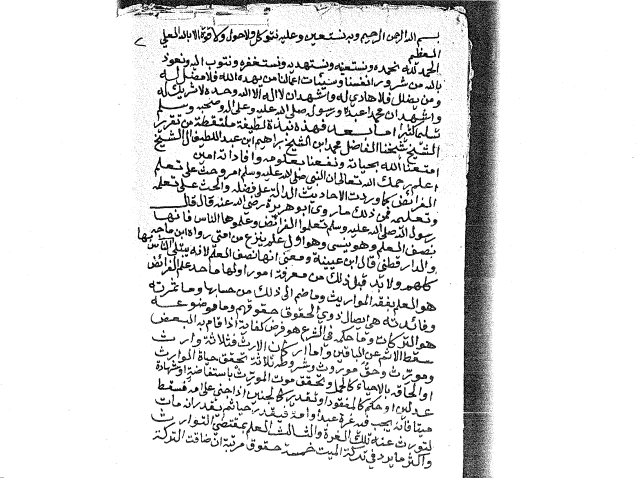 بسم الله الرحمن الرحيم وبه نستعين وعليه نتوكل ولا حول ولا قوة الا بالله العلي
العظيم
الحمد لله نحمده ونستعينه ونستهديه ونستغفره ونتوب اليه ونعوذ
بالله من شرور انفسنا وسيئات اعمالنا من يهده الله فلا مضل له
ومن يضلل فلا هادي له واشهد ان لا اله الا الله وحده لا شريك له
واشهد ان محمدا عبده ورسوله صلى الله عليه وعلى اله وصحبه وسلم
تسليما كثيرا اما بعد فهذه نبذة لطيفة ملتقطة من تقرير
الشيخ شيخنا الفاضل محمد ابن الشيخ ابراهيم ابن عبد اللطيف ال الشيخ
امتعنا الله بحياته ونفعنا بعلومه وافاداته امين
اعلم رحمك الله تعالى ان النبي صلى الله عليه وسلم امر وحث على تعلم
الفرائض كما وردت الاحاديث الدالة على فضله والحث على تعلمه
وتعليمه فمن ذلك ما روى ابو هريرة رضي الله عنه قال قال
رسول الله صلى الله عليه وسلم تعلموا الفرائض وعلموها الناس فانها
نصف العلم وهو ينسى وهو اول علم ينزع من امتي رواه ابن ماجه
والدارقطني قال ابن عيينة ومعنى انها نصف العلم لانه يبتلى به الناس
كلهم ولا بد قبل ذلك من معرفة امور اولها ما حد علم الفرائض
هو العلم بفقه المواريث وما ضم الى ذلك من حسابها وما ثمرته
وفائدته هي ايصال ذوي الحقوق حقوقهم وما موضوعه
هو التركات وما حكمه في الشرع هو فرض كفاية اذا قام به البعض
سقط الاثم عن الباقين واما اركان الارث فثلاثة وارث
ومورث وحق موروث وشروطه ثلاثة تحقق حياة الوارث
او الحاقه بالاحياء كالحمل وتحقق موت المورث باستفاضة او شهادة
عدلين او حكم كالمفقود او تقدير كالجنين اذا جني على امه فسقط
ميتا فانه يجب فيه غرة عبد او امة فيقدر حيا ثم يقدر انه مات
لتورث عنه تلك الغرة والثالث العلم بمقتضى التوارث
واكثر ما يرد في تركة الميت خمسة حقوق مرتبة ان ضاقت التركة